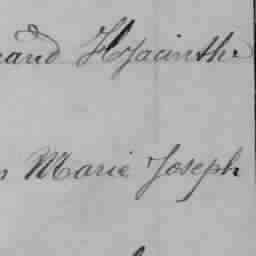 Hyacinthe
Marie Joseph